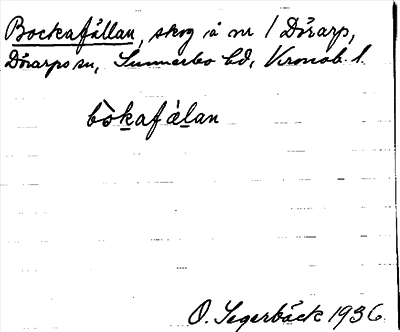 Bockafällan, skog å nr 1 Dörarp,
Dörarps sn, Sunnerbo hd, Kronob. l.
bòkafálan
O. Segerbäck 1936.